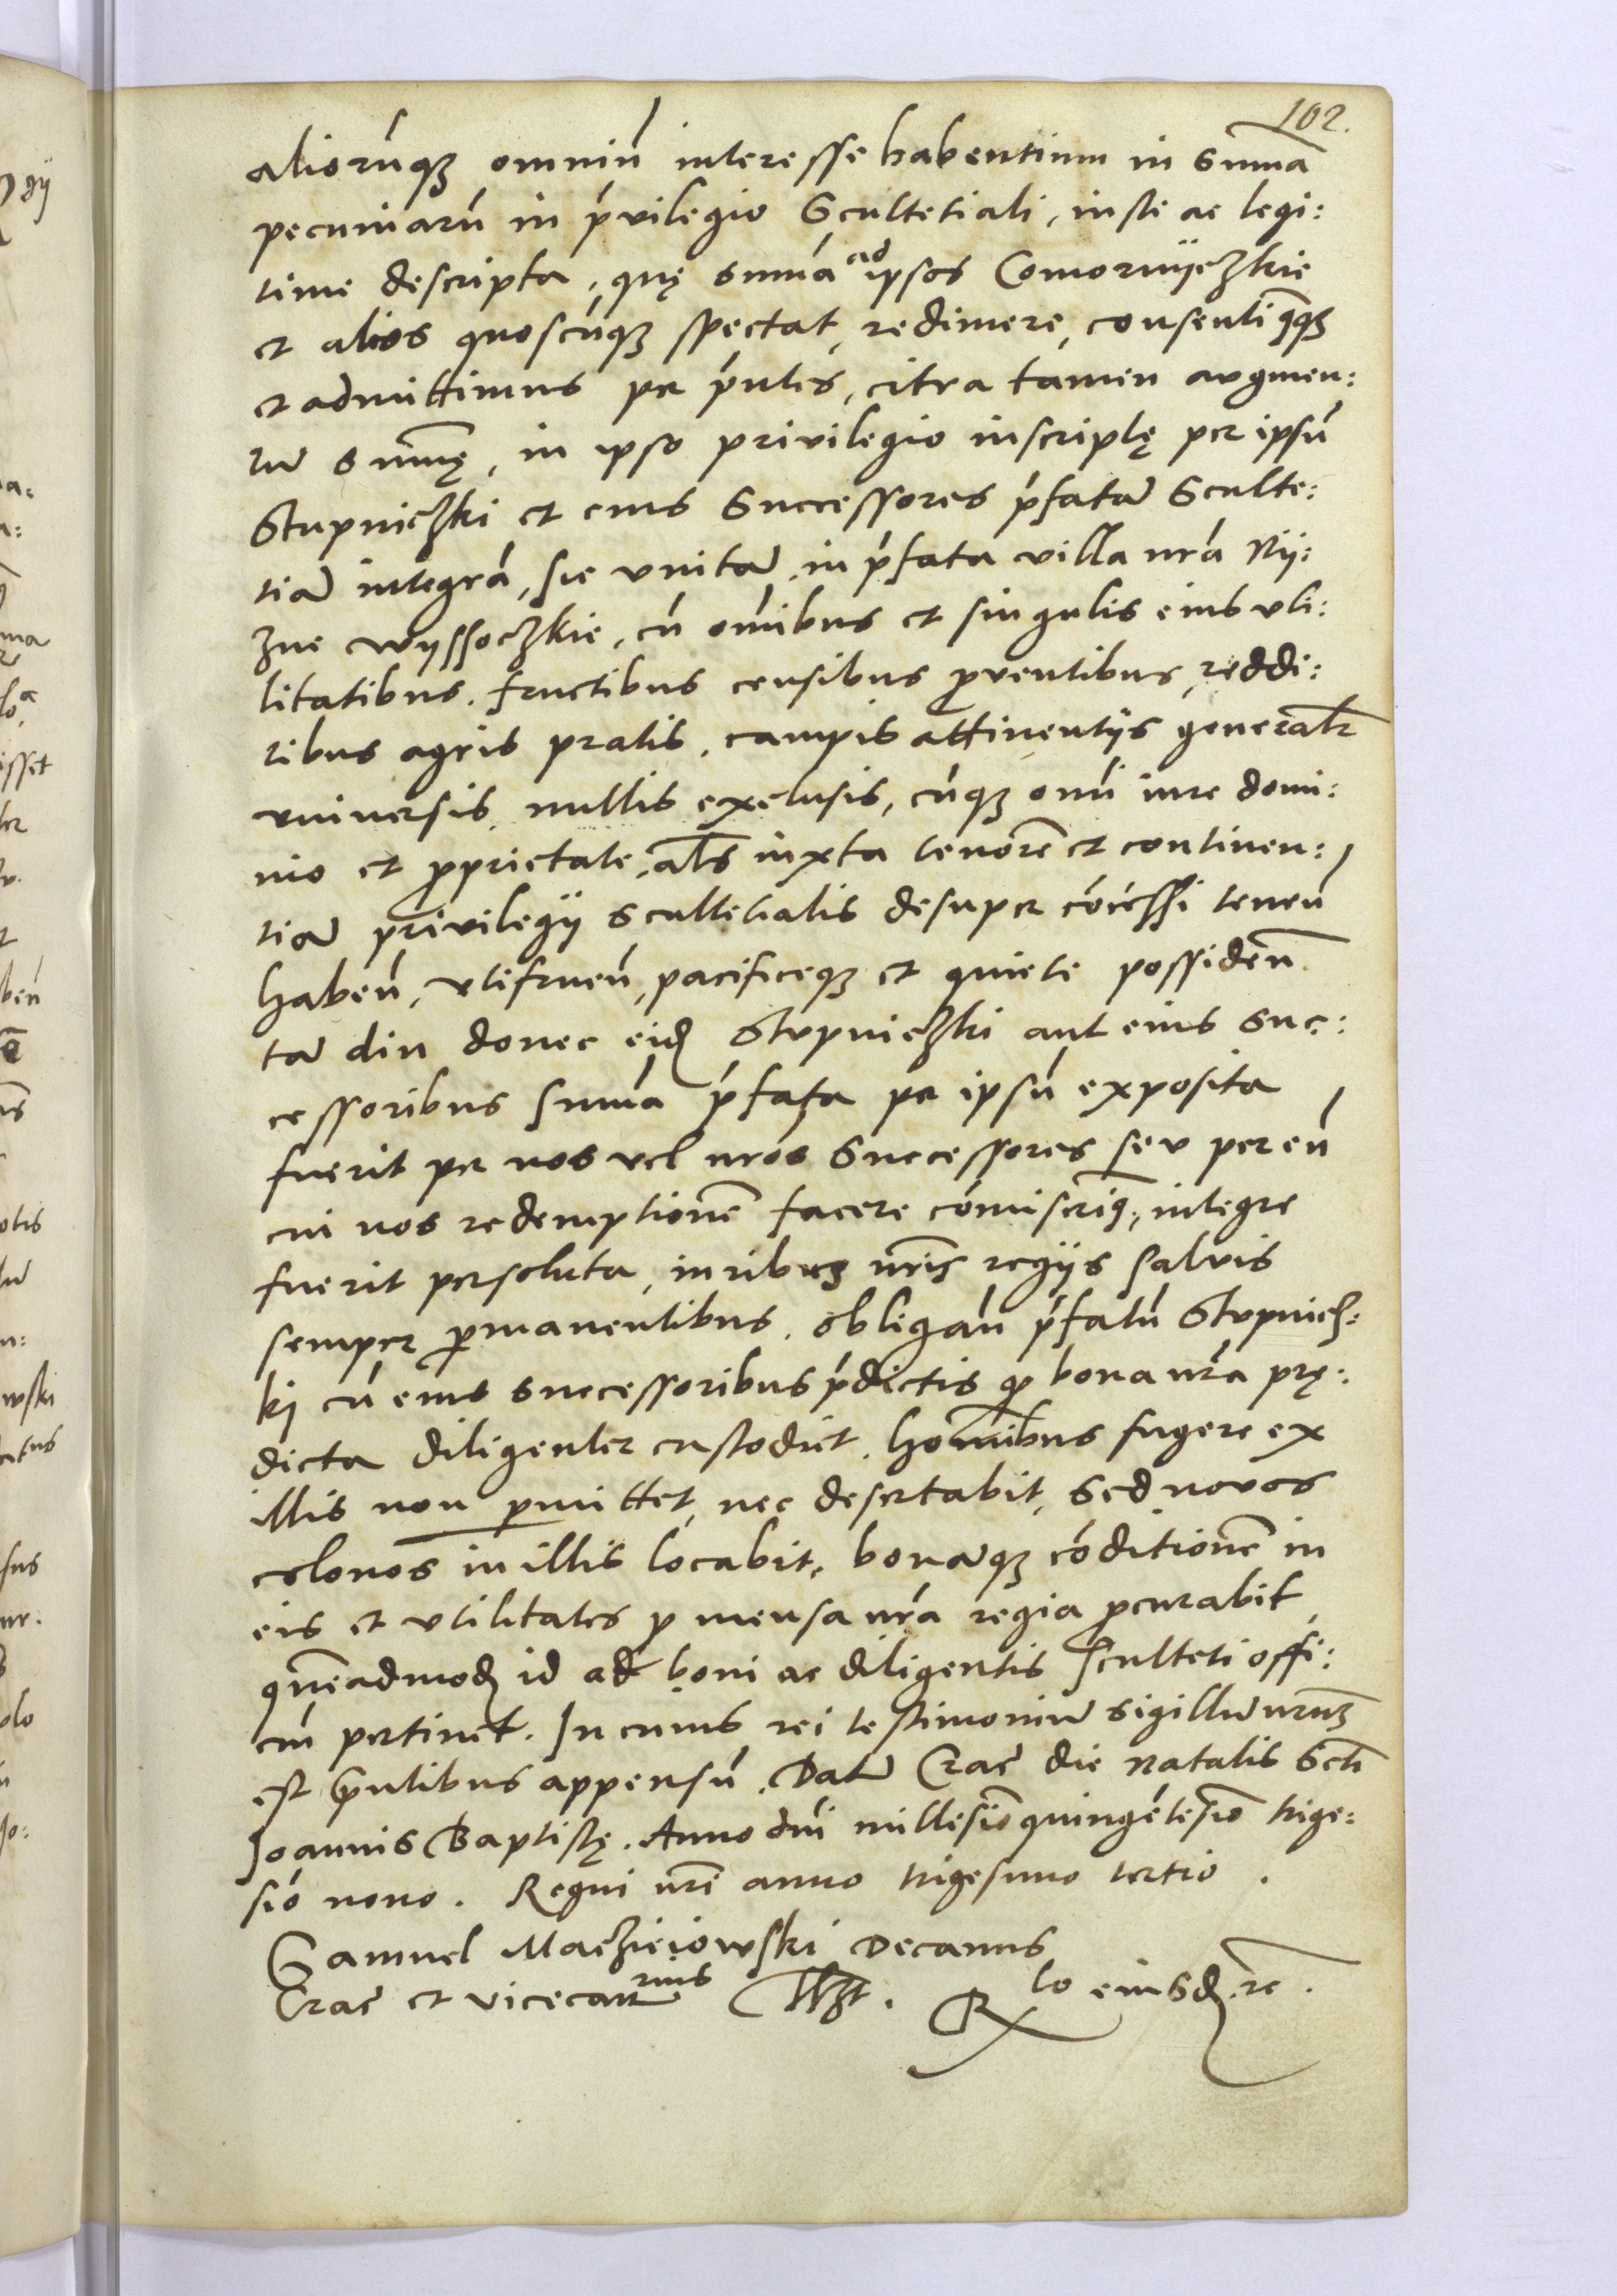 102.
aliorūqꝫ omniū interesse habentium in sūma
pecuniarū in p̄vilegio Scultetiali, iuste ac legi:
time descripta, quę sūma ad ipsos Comornÿeczkie
et alios quoscūqꝫ spectat, redimere, consentiqꝫ
et admittimus per p̄ntes, citra tamen augmen:
tū sūmę, in ipso privilegio inscriptę per ipsū
Stupniczki et eius Successores p̄fatā Sculte:
tiā integrā, sic unitā, in p̄fata villa nr̄a Nÿ:
zne Wyssoczkie, cū om̄ibus et singulis eius uti:
litatibus, fructibus censibus ꝓventibus, reddi:
tibus agris pratis, campis attinentÿs generalr̄
universis, nullis exclusis, cūqꝫ om̄i iure domi:
nio et ꝓprietate, als̄ iuxta tenorē et continen:
tiā privilegÿ scultetialis desuper cōcessi tenen̄
haben̄, utifruen̄, pacificeqꝫ et quiete possiden̄.
tā diu donec eidꝫ Stupniczki aut eius Suc:
cessoribus sum̄a p̄fata per ipsū exposita
fuerit per nos vel nr̄os Successores seu per eū
cui nos redemptionē facere cōmiserimꝰ, integre
fuerit persoluta, iuribus nr̄is regÿs salvis
semper ꝑmanentibus. obligan̄ p̄fatū Stupnicz:
kj cū eius successoribus p̄dictis qꝙ bona nr̄a prę:
dicta diligenter custodiet, hom̄ibus fugere ex
illis non ꝑmittet, nec desertabit, Sed novos
colonos in illis locabit, bonāqꝫ cōditionē in
eis et utilitates ꝓ mensa nr̄a regia ꝓcurabit,
quēadmodꝫ id ad boni ac diligentis sculteti offi:
ciū pertinet. In cuius rei testimoniū sigillū nr̄um
est p̄ntibus appensū. Datū Crac̄ die Natalis Scti̅
Joannis Baptistę. Anno dn̄i millesīo quingētesīo trige:
sīo nono. Regni nr̄i anno trigesimo tertio.
Samuel Maczieiowski Decanus
Crac̄ et vicecan̄rius sszt. R̄lo eiusdꝫ. rc̄.